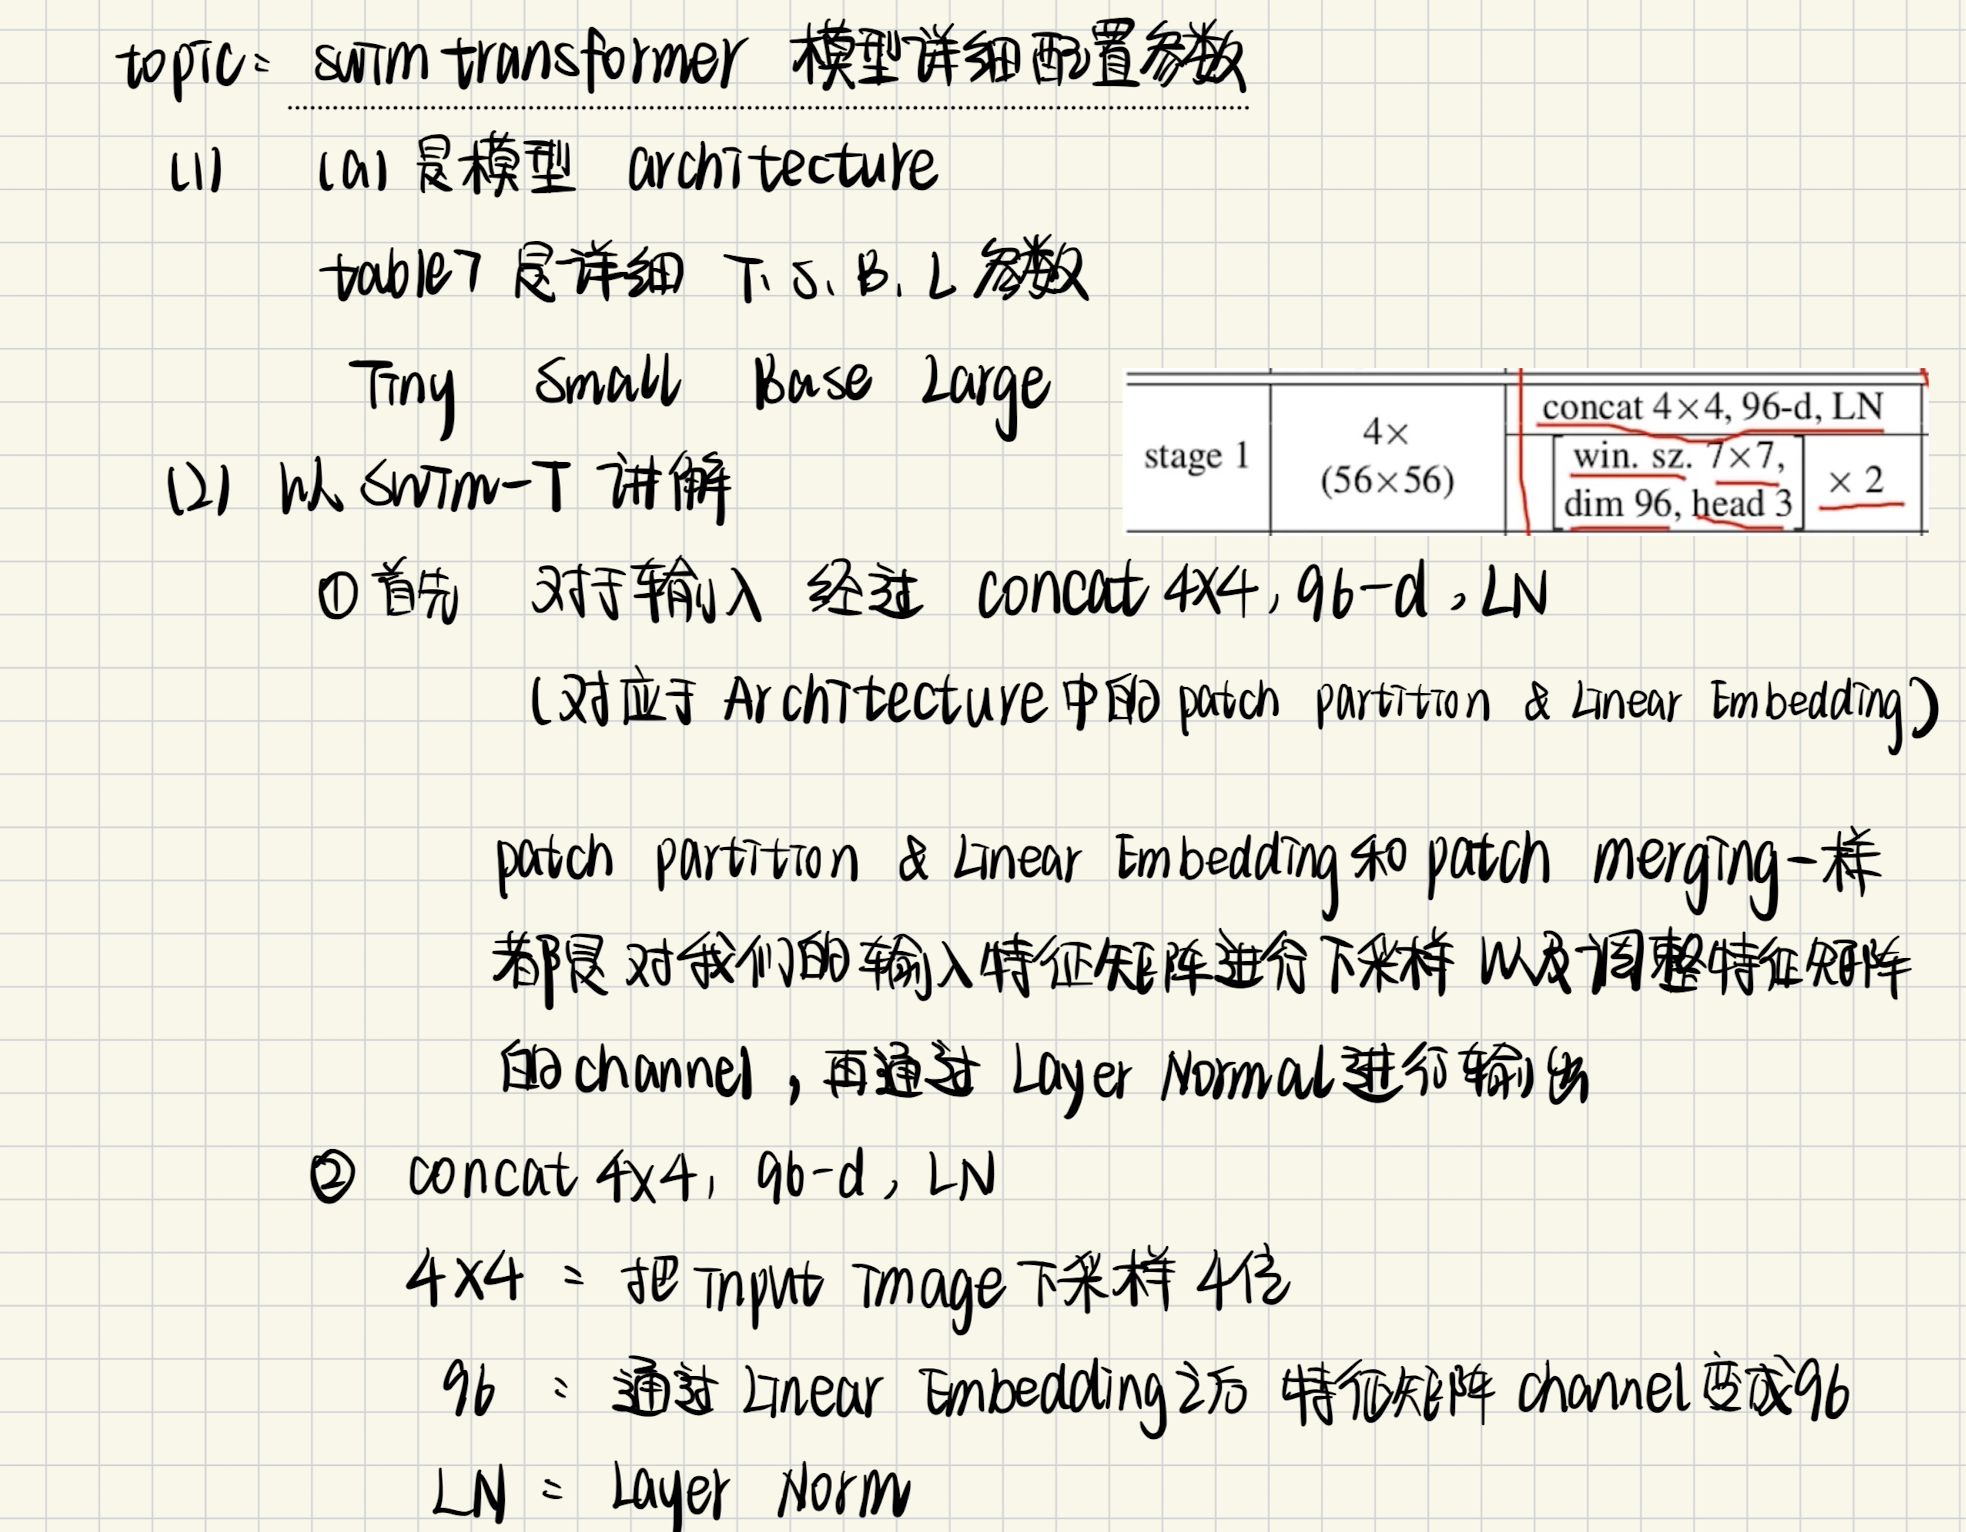 topic: swim transformer 模型详细配置参数
(1) (a) 是模型 architecture
table7 是详细 T、S、B、L 参数
Tiny Small Base Large
stage 1
4×
(56×56)
concat 4×4, 96-d, LN
win. sz. 7×7,
dim 96, head 3
× 2
(2) 以 swim-T 讲解
① 首先 对于输入 经过 concat 4×4, 96-d, LN
(对应于 Architecture 中的 patch partition & Linear Embedding)
patch partition & Linear Embedding 和 patch merging 一样
都是 对我们的输入特征矩阵进行下采样 以及调整特征矩阵
的 channel, 再通过 Layer Normal 进行输出
② concat 4×4, 96-d, LN
4×4 : 把 input image 下采样 4倍
96 : 通过 Linear Embedding 之后 特征矩阵 channel 变成96
LN : Layer Norm